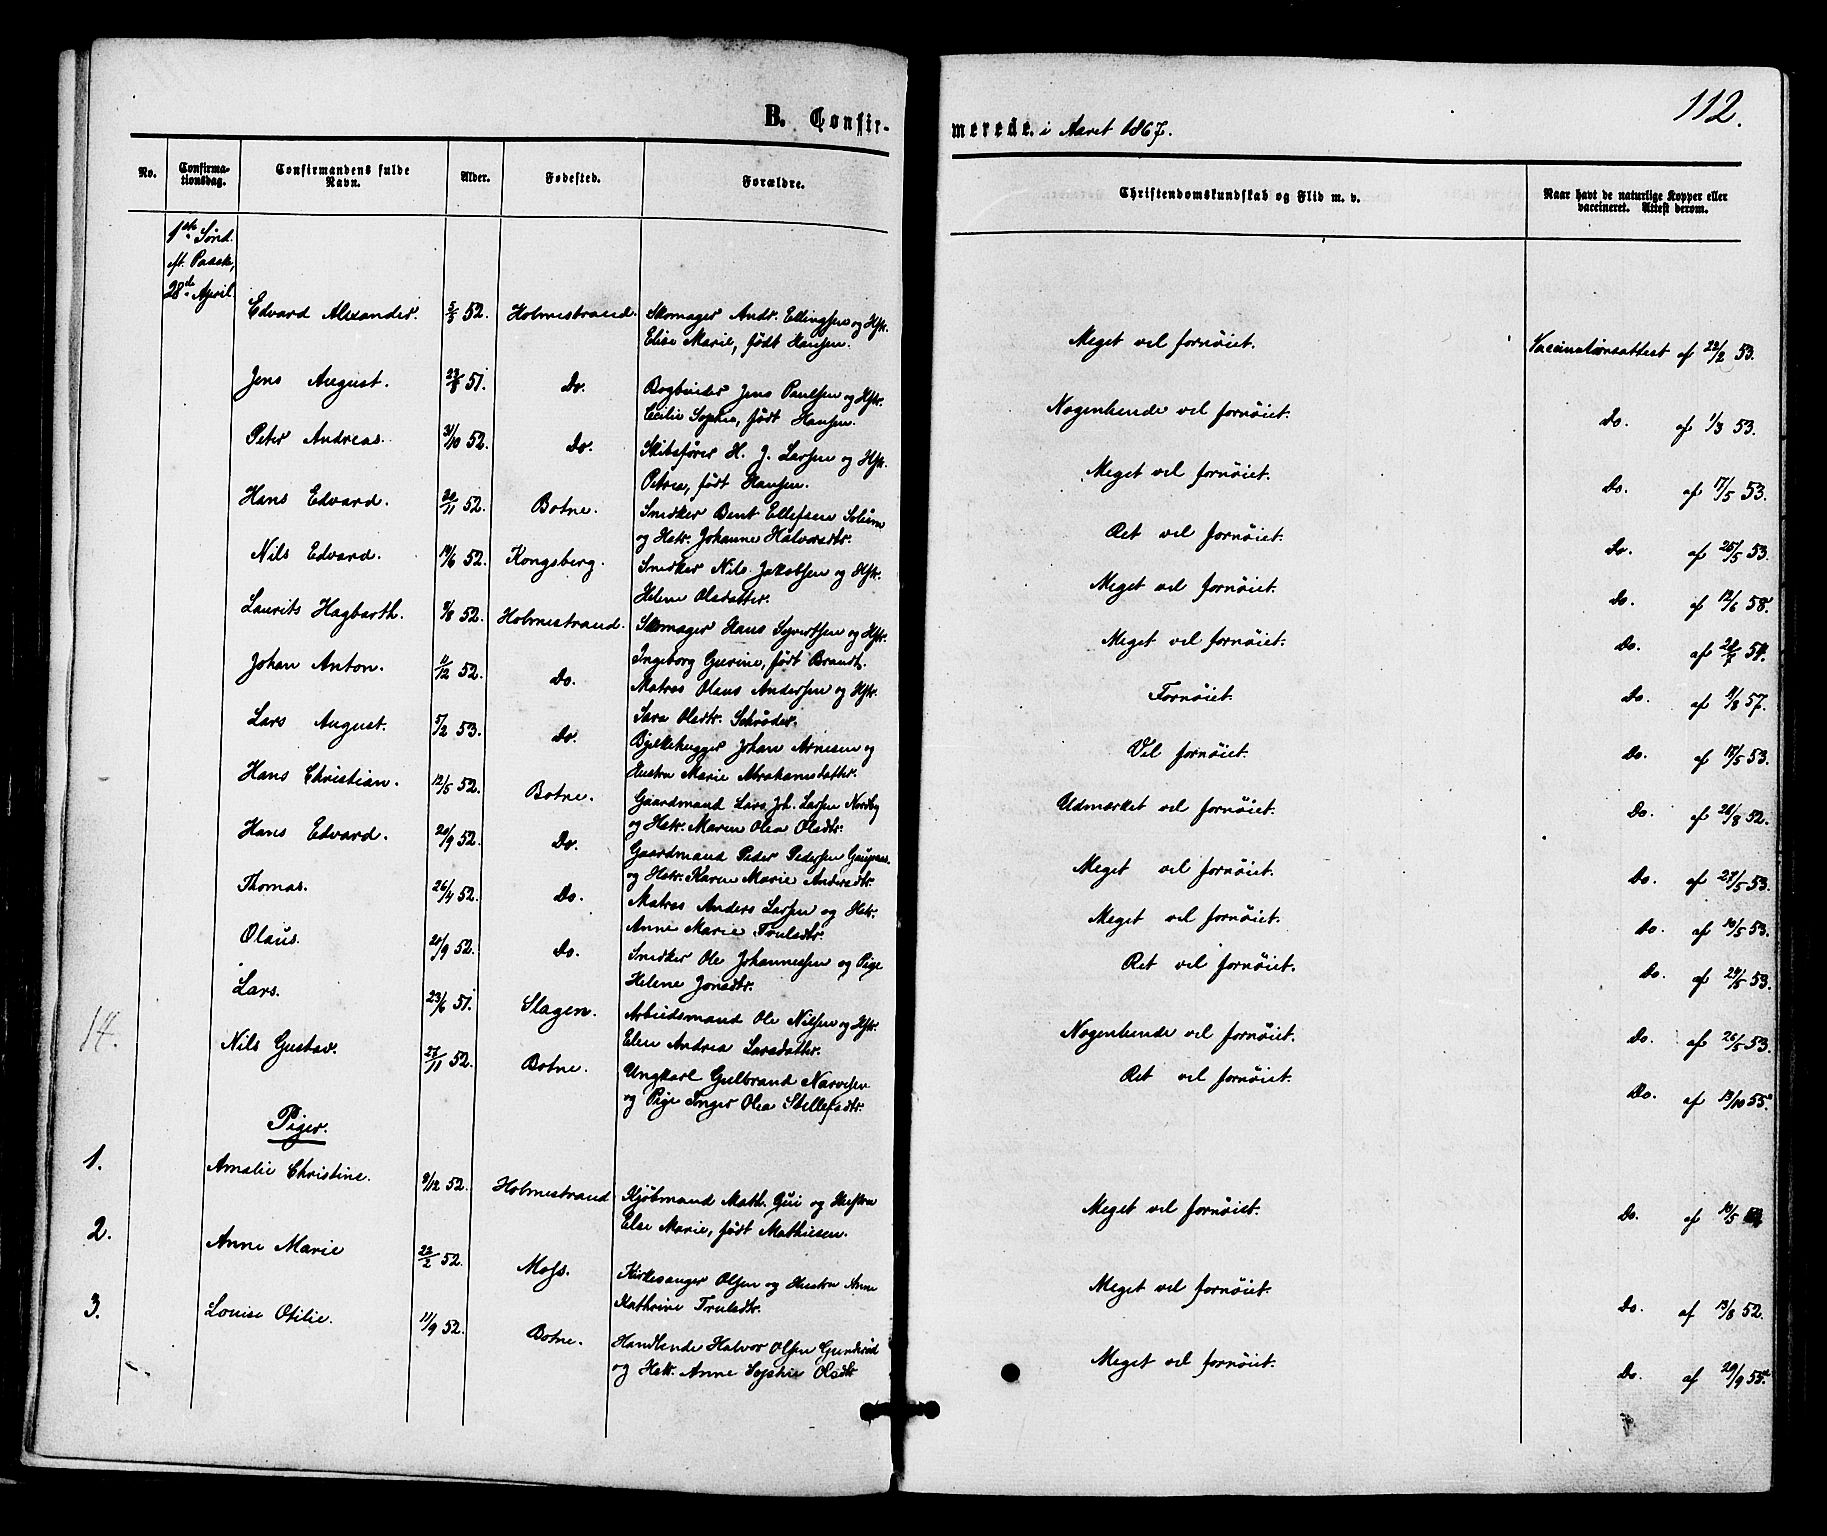 112.
B. Confir-
merede. i Aaret 1867.
No.
Confirma-
tionsdag.
Confirmandens fulde
Navn.
Alder.
Fødested.
Forældre.
Christendomskundskab og Flid m. v.
Naar havt de naturlige Kopper eller
vaccineret. Attest derom.
1ste Sønd.
eft. Paask,
28de April
Edvard Alexander. 5/3 52. Holmestrand. Skomager Andr. Ellingsen og Hstr.
Elise Marie, født Hansen. Meget vel fornøiet. Vaccinationsattest af 22/2 53.
Jens August. 23/8 51. Do. Bogbinder Jens Paulsen og Hstr.
Cecilie Sophie, født Hansen. Nogenlunde vel fornøiet. Do. af 1/3 53.
Peter Andreas. 31/10 52. Do. Skibsfører H. J. Larsen og Hstr.
Petrea, født Hansen. Meget vel fornøiet. Do. af 17/5 53.
Hans Edvard. 20/11 52. Botne. Snedker Bent Ellefsen Solum
og Hstr. Johanne Halvorsdtr. Ret vel fornøiet. Do. af 25/5 53.
Nils Edvard. 19/6 52. Kongsberg. Snedker Nils Jakobsen og Hstr.
Helene Olsdatter. Meget vel fornøiet. Do. af 12/6 58.
Laurits Hagbarth. 9/8 52. Holmestrand. Skomager Hans Syvertsen og Hstr.
Ingeborg Gurine, født Brandt. Meget vel fornøiet. Do. af 28/7 54.
Johan Anton. 11/12 52. Do. Matros Olaus Andersen og Hstr.
Sara Olsdtr. Schrøder. Fornøiet. Do. af 11/8 57.
Lars August. 5/2 53. Do. Bjelkehugger Johan Arnesen og
Hustru Marie Abrahamsdatter. Vel fornøiet. Do. af 17/5 53.
Hans Christian. 12/5 52. Botne. Gaardmand Lars Joh. Larsen Nordby
og Hstr. Maren Olea Olsdtr. Udmærket vel fornøiet. Do. af 28/8 52.
Hans Edvard. 20/9 52. Do. Gaardmand Peder Pedersen
og Hstr. Karen Marie Andersdtr. Meget vel fornøiet. Do. af 27/5 53.
Thomas. 26/4 52. Do. Matros Anders Larsen og Hstr.
Anne Marie Trulsdtr. Meget vel fornøiet. Do. af 10/5 53.
Olaus. 20/9 52. Do. Snedker Ole Johannessen og Pige
Helene Jonsdtr. Ret vel fornøiet. Do. af 24/5 53.
Lars. 23/6 51. Slagen. Arbeidsmand Ole Nilsen og Hstr.
Elen Andrea Larsdatter. Nogenlunde vel fornøiet. Do. af 26/5 53.
14. Nils Gustav. 27/11 52. Botne. Ungkarl Gulbrand Narvesen
og Pige Inger Olea Stillefsdtr. Ret vel fornøiet. Do. af 13/10 55.
Piger.
1. Amalie Christine. 9/12 52. Holmestrand Kjøbmand Math. Gui og Hustru
Else Marie, født Mathiesen. Meget vel fornøiet. Do. af 10/5
2. Anne Marie 22/2 52. Moss. Kirkesanger Olsen og Hustru Anne
Kathrine Trulsdtr. Meget vel fornøiet. Do. af 13/8 52.
3. Louise Otilie. 11/9 52. Botne. Handlende Halvor Olsen Gunderud
og Hstr. Anne Sophie Olsdtr Meget vel fornøiet. Do. af 20/9 55.